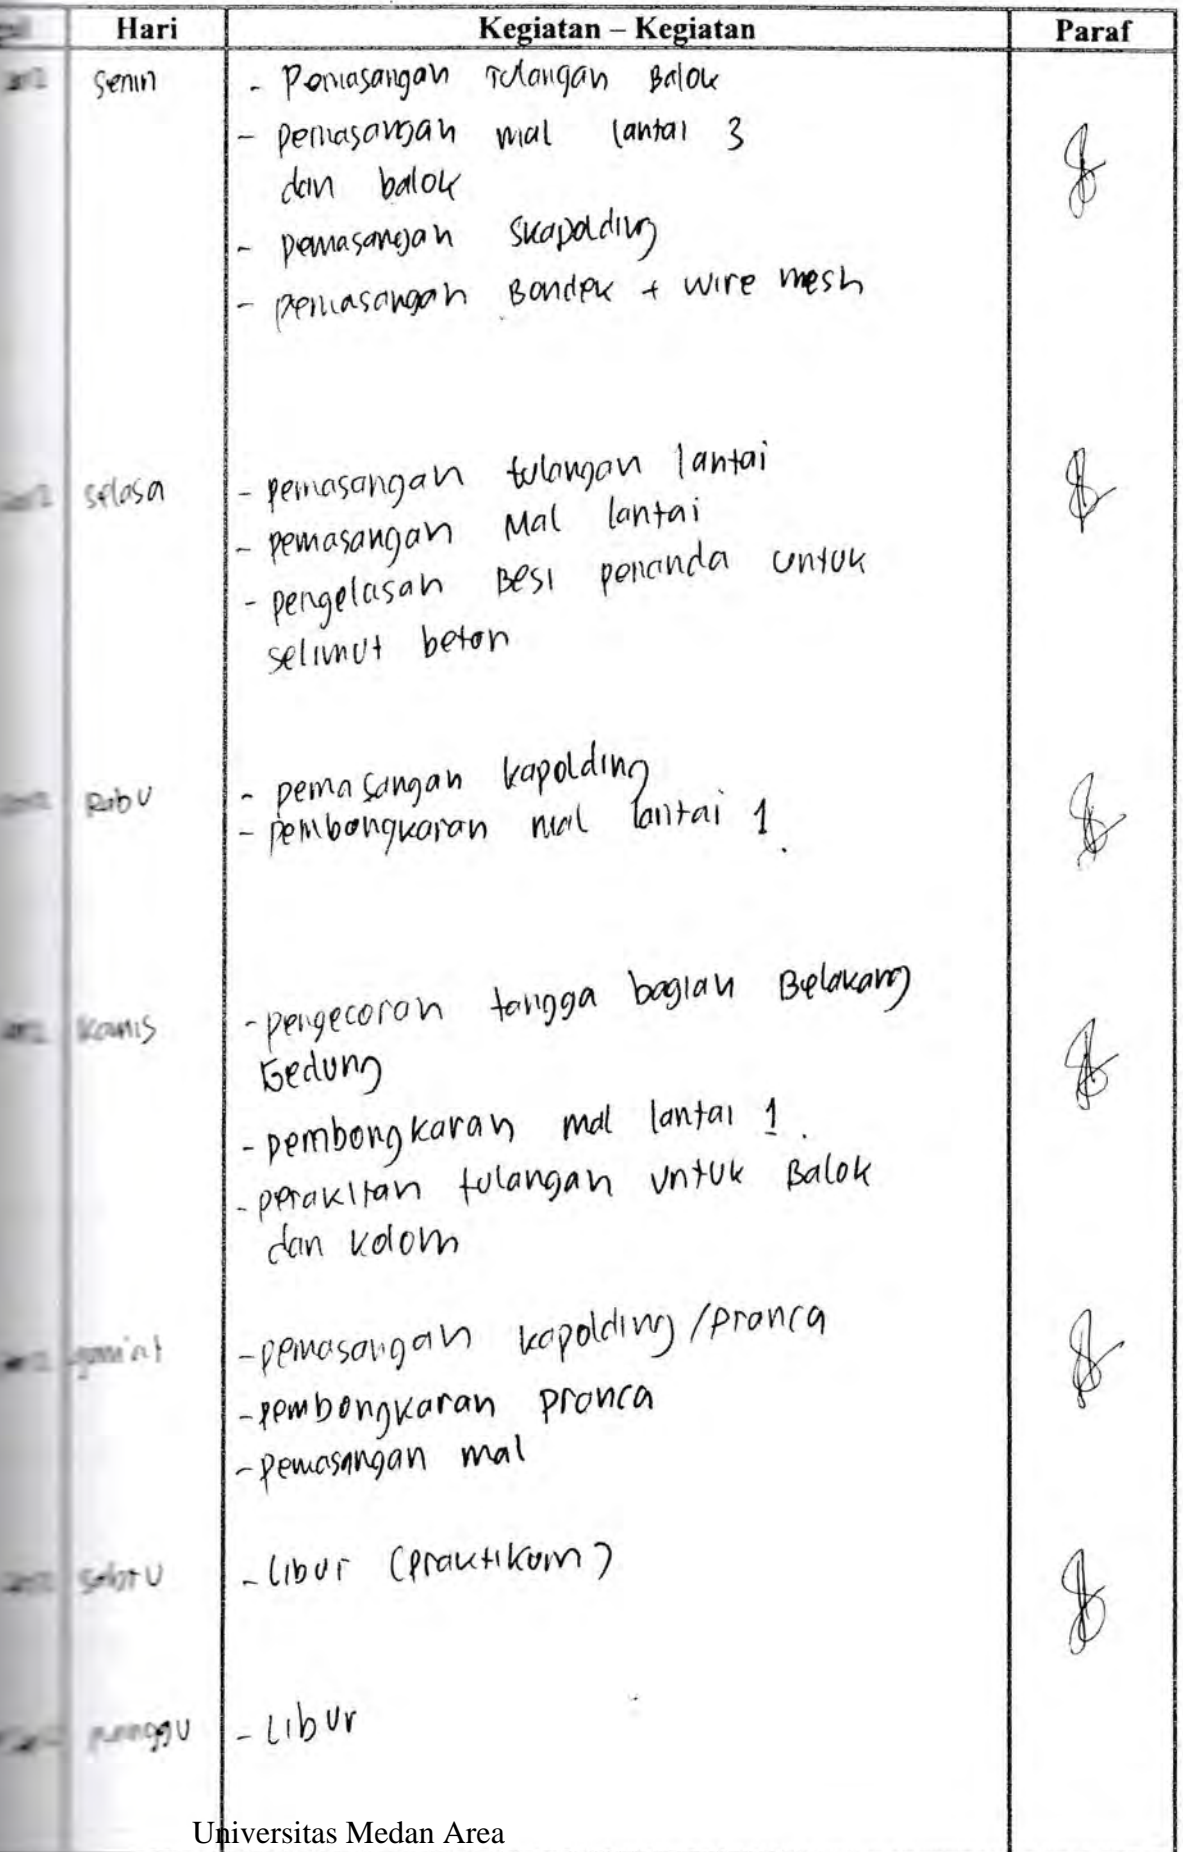 Hari Kegiatan – Kegiatan Paraf
Senin - Pemasangan Tulangan Balok
- pemasangan mal lantai 3
dan balok
- pemasangan skapolding
- pemasangan Bondek + wire mesh
selasa - pemasangan tulangan lantai
- pemasangan Mal lantai
- pengelasan Besi penanda untuk
selimut beton
Rabu - pemasangan kapolding
- pembongkaran mal lantai 1.
Kamis - pengecoran tangga bagian Belakang
Gedung
- pembongkaran mal lantai 1.
- perakitan tulangan untuk Balok
dan kolom
jum'at - pemasangan kapolding / pranca
- pembongkaran pranca
- pemasangan mal
sabtu - Libur (praktikum)
minggu - Libur
Universitas Medan Area